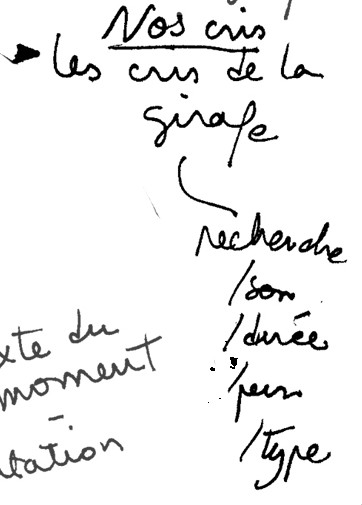 Nos cris
les cris de la
girafe
recherche
/son
/durée
/type
xte du
moment
-
tation